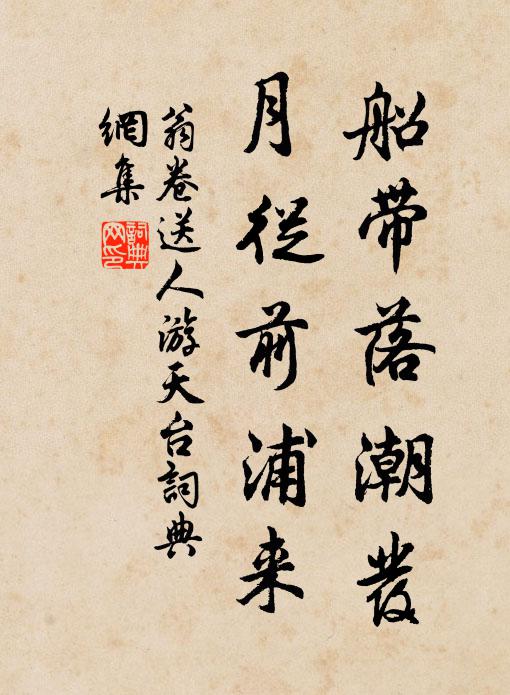 船帶落潮發
月從前浦来
翁卷送人游天台詞典
網集
詞典网印